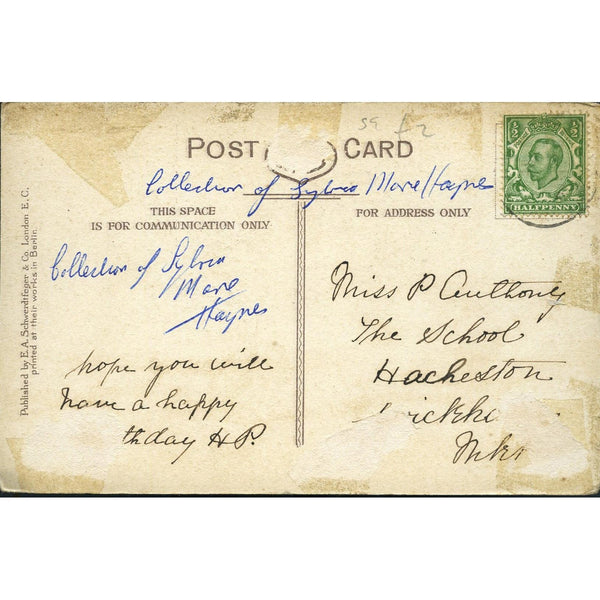 59 £2
POST CARD
Collection of Sylvia Marie Haynes
THIS SPACE
IS FOR COMMUNICATION ONLY
FOR ADDRESS ONLY
½ ½
HALFPENNY
Collection of Sylvia
Marie
Haynes
hope you will
have a happy
thday HP.
Miss P Anthony
The School
Hacheston
Published by E.A. Schwerdtfeger & Co. London E.C.
printed at their works in Berlin